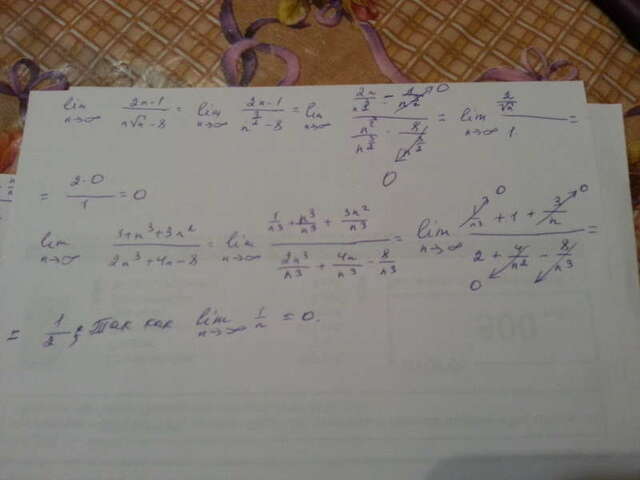 lim n→∞ (2n-1)/(n√n-8) = lim n→∞ (2n-1)/(n^(3/2)-8) = lim n→∞ (2n/n^(3/2) - 1/n^(3/2))/(n^(3/2)/n^(3/2) - 8/n^(3/2)) = lim n→∞ (2/√n)/1 =
= (2·0)/1 = 0
lim n→∞ (1+n³+3n²)/(2n³+4n-8) = lim n→∞ (1/n³ + n³/n³ + 3n²/n³)/(2n³/n³ + 4n/n³ - 8/n³) = lim n→∞ (1/n³ + 1 + 3/n)/(2 + 4/n² - 8/n³) =
= 1/2; так как lim n→∞ 1/n = 0.